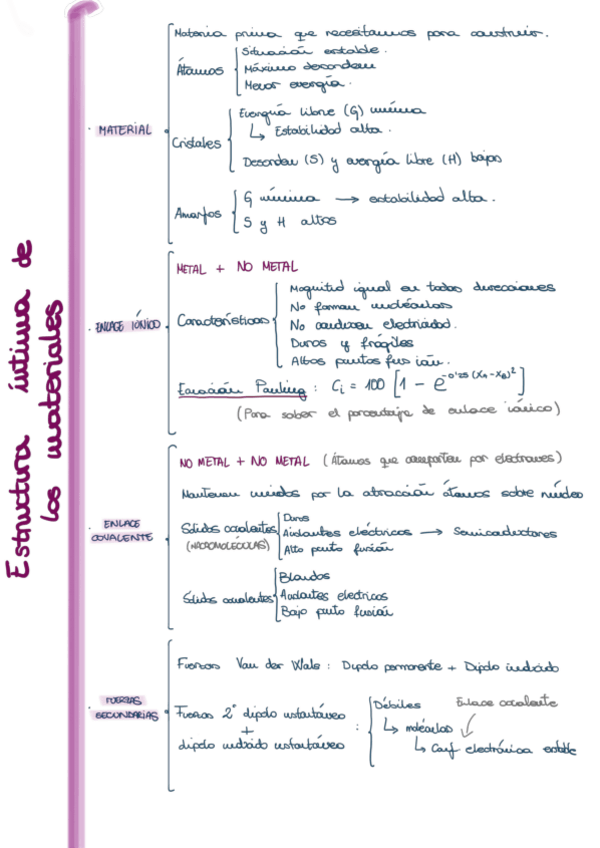 Estructura íntima de
los materiales
MATERIAL
Materia prima que necesitamos para construir.
Átomos
Situación estable.
Máximo desorden
Menor energía.
Cristales
Energía libre (G) mínima
↳ Estabilidad alta.
Desorden (S) y energía libre (H) bajos
Amorfos
G mínima → estabilidad alta.
S y H altos
ENLACE IÓNICO
METAL + NO METAL
Características
Magnitud igual en todas direcciones
No forman moléculas
No conducen electricidad.
Duros y frágiles
Altos puntos fusión.
Ecuación Pauling : Ci = 100 [1 - e^-0'25 (XA-XB)²]
(Para saber el porcentaje de enlace iónico)
ENLACE
COVALENTE
NO METAL + NO METAL (Átomos que comparten por electrones)
Mantienen unidos por la atracción átomos sobre núcleo
Sólidos covalentes
(MACROMOLÉCULAS)
Duros
Aislantes eléctricos → Semiconductores
Alto punto fusión
Sólidos covalentes
Blandos
Aislantes electricos
Bajo punto fusión
FUERZAS
SECUNDARIAS
Fuerzas Van der Wals : Dipolo permanente + Dipolo inducido
Fuerzas 2ª dipolo instantáneo
+
dipolo inducido instantáneo :
Débiles
↳ moléculas
Enlace covalente
↳ Conf electrónica estable